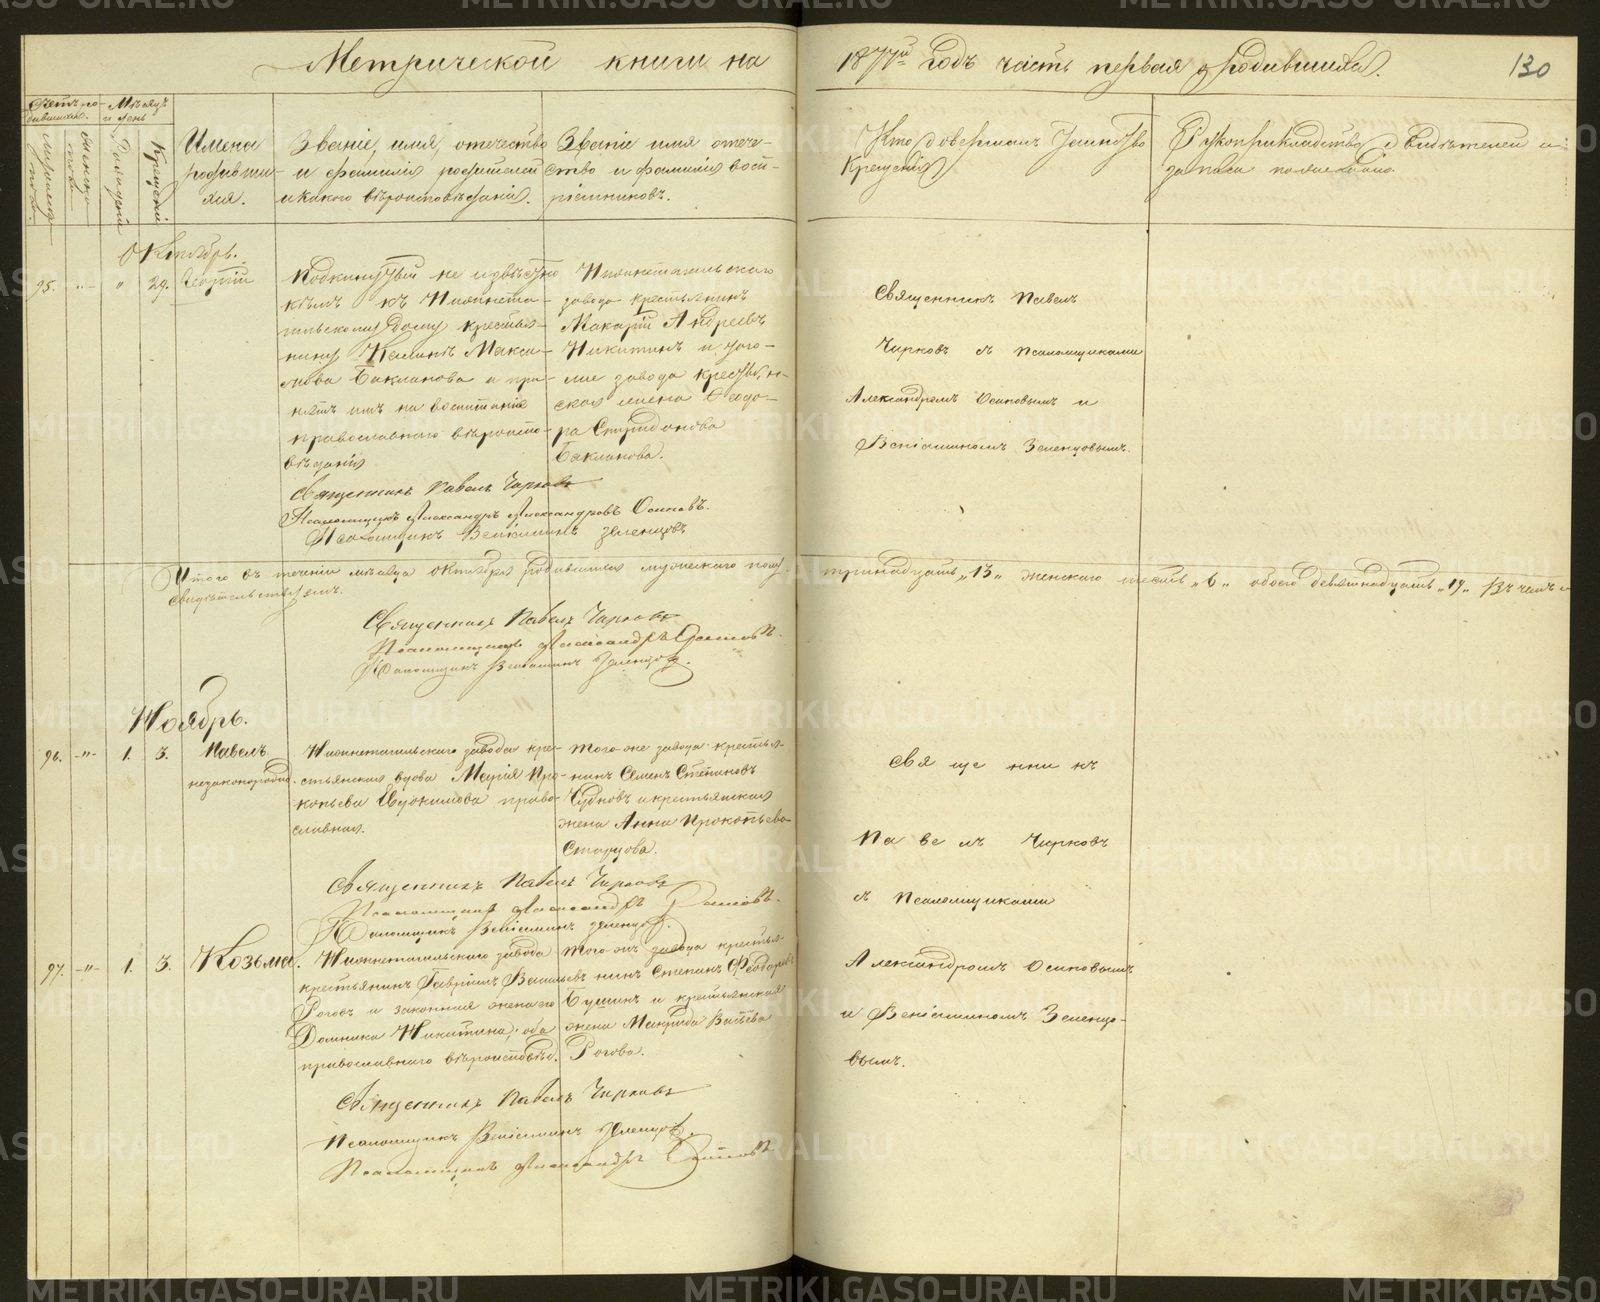 Метрической книги на 1877й годъ часть первая о родившихся.
130
Счетъ ро-
дившихся.
Мѣсяцъ
и день
мужеска
женска
Рожденія
Крещенія
Имена
родивши-
хся.
Званіе, имя, отечество
и фамилія родителей
и какого вѣроисповѣданія.
Званіе имя отече-
ство и фамилія восп-
ріемниковъ.
Кто совершалъ Таинство
Крещенія
Рукоприкладство свидѣтелей
записи по желанію.
Октябрь.
95. -"- " 29. Георгій
Подкинутый не извѣстно
кѣмъ къ Нижнета-
гильскому дому крестья-
нину Калинѣ Макси-
мова Бакланова и при-
нятъ имъ на воспитаніе
православнаго вѣроиспо-
вѣданія
Нижнетагильскаго
завода крестьянинъ
Макарій Андреевъ
Никитинъ и того-
же завода крестьян-
ская жена Ѳеодо-
ра Спиридонова
Бакланова.
Священникъ Павелъ
Чирковъ съ псаломщиками
Александромъ Осиповымъ и
Веніаминомъ Зеленцовымъ.
Священникъ Павелъ Чирковъ
Псаломщикъ Александръ Александровъ Осиповъ.
Псаломщикъ Веніаминъ Зеленцовъ
Итого въ теченіи мѣсяца октября родившихся мужескаго полу тринадцать "13" женскаго шесть "6" обоего девятнадцать "19" Въ чемъ и
свидѣтельствуемъ.
Священникъ Павелъ Чирковъ
Псаломщикъ Александръ Осиповъ.
Псаломщикъ Веніаминъ Зеленцовъ.
Ноябрь.
96. -"- 1. 3. Павелъ
незаконорожд.
Нижнетагильскаго завода кре-
стьянская вдова Марія Про-
копьева Евдокимова право-
славная.
того-же завода крестья-
нинъ Семенъ Степановъ
Чудновъ и крестьянская
жена Анна Прокопьева
Старцова.
Священникъ
Павелъ Чирковъ
съ псаломщиками
Александромъ Осиповымъ
и Веніаминомъ Зеленцо-
вымъ.
Священникъ Павелъ Чирковъ
Псаломщикъ Александръ Осиповъ.
Псаломщикъ Веніаминъ Зеленцовъ.
97. -"- 1. 3. Козьма.
Нижнетагильскаго завода
крестьянинъ Гавріилъ Васильевъ
Роговъ и законная жена его
Домника Никитина, оба
православнаго вѣроисповѣд.
того-же завода крестья-
нинъ Степанъ Ѳеодоровъ
Бушинъ и крестьянская
жена Макрида
Рогова.
Священникъ Павелъ Чирковъ
Псаломщикъ Веніаминъ Зеленцовъ.
Псаломщикъ Александръ Осиповъ
METRIKI.GASO-URAL.RU